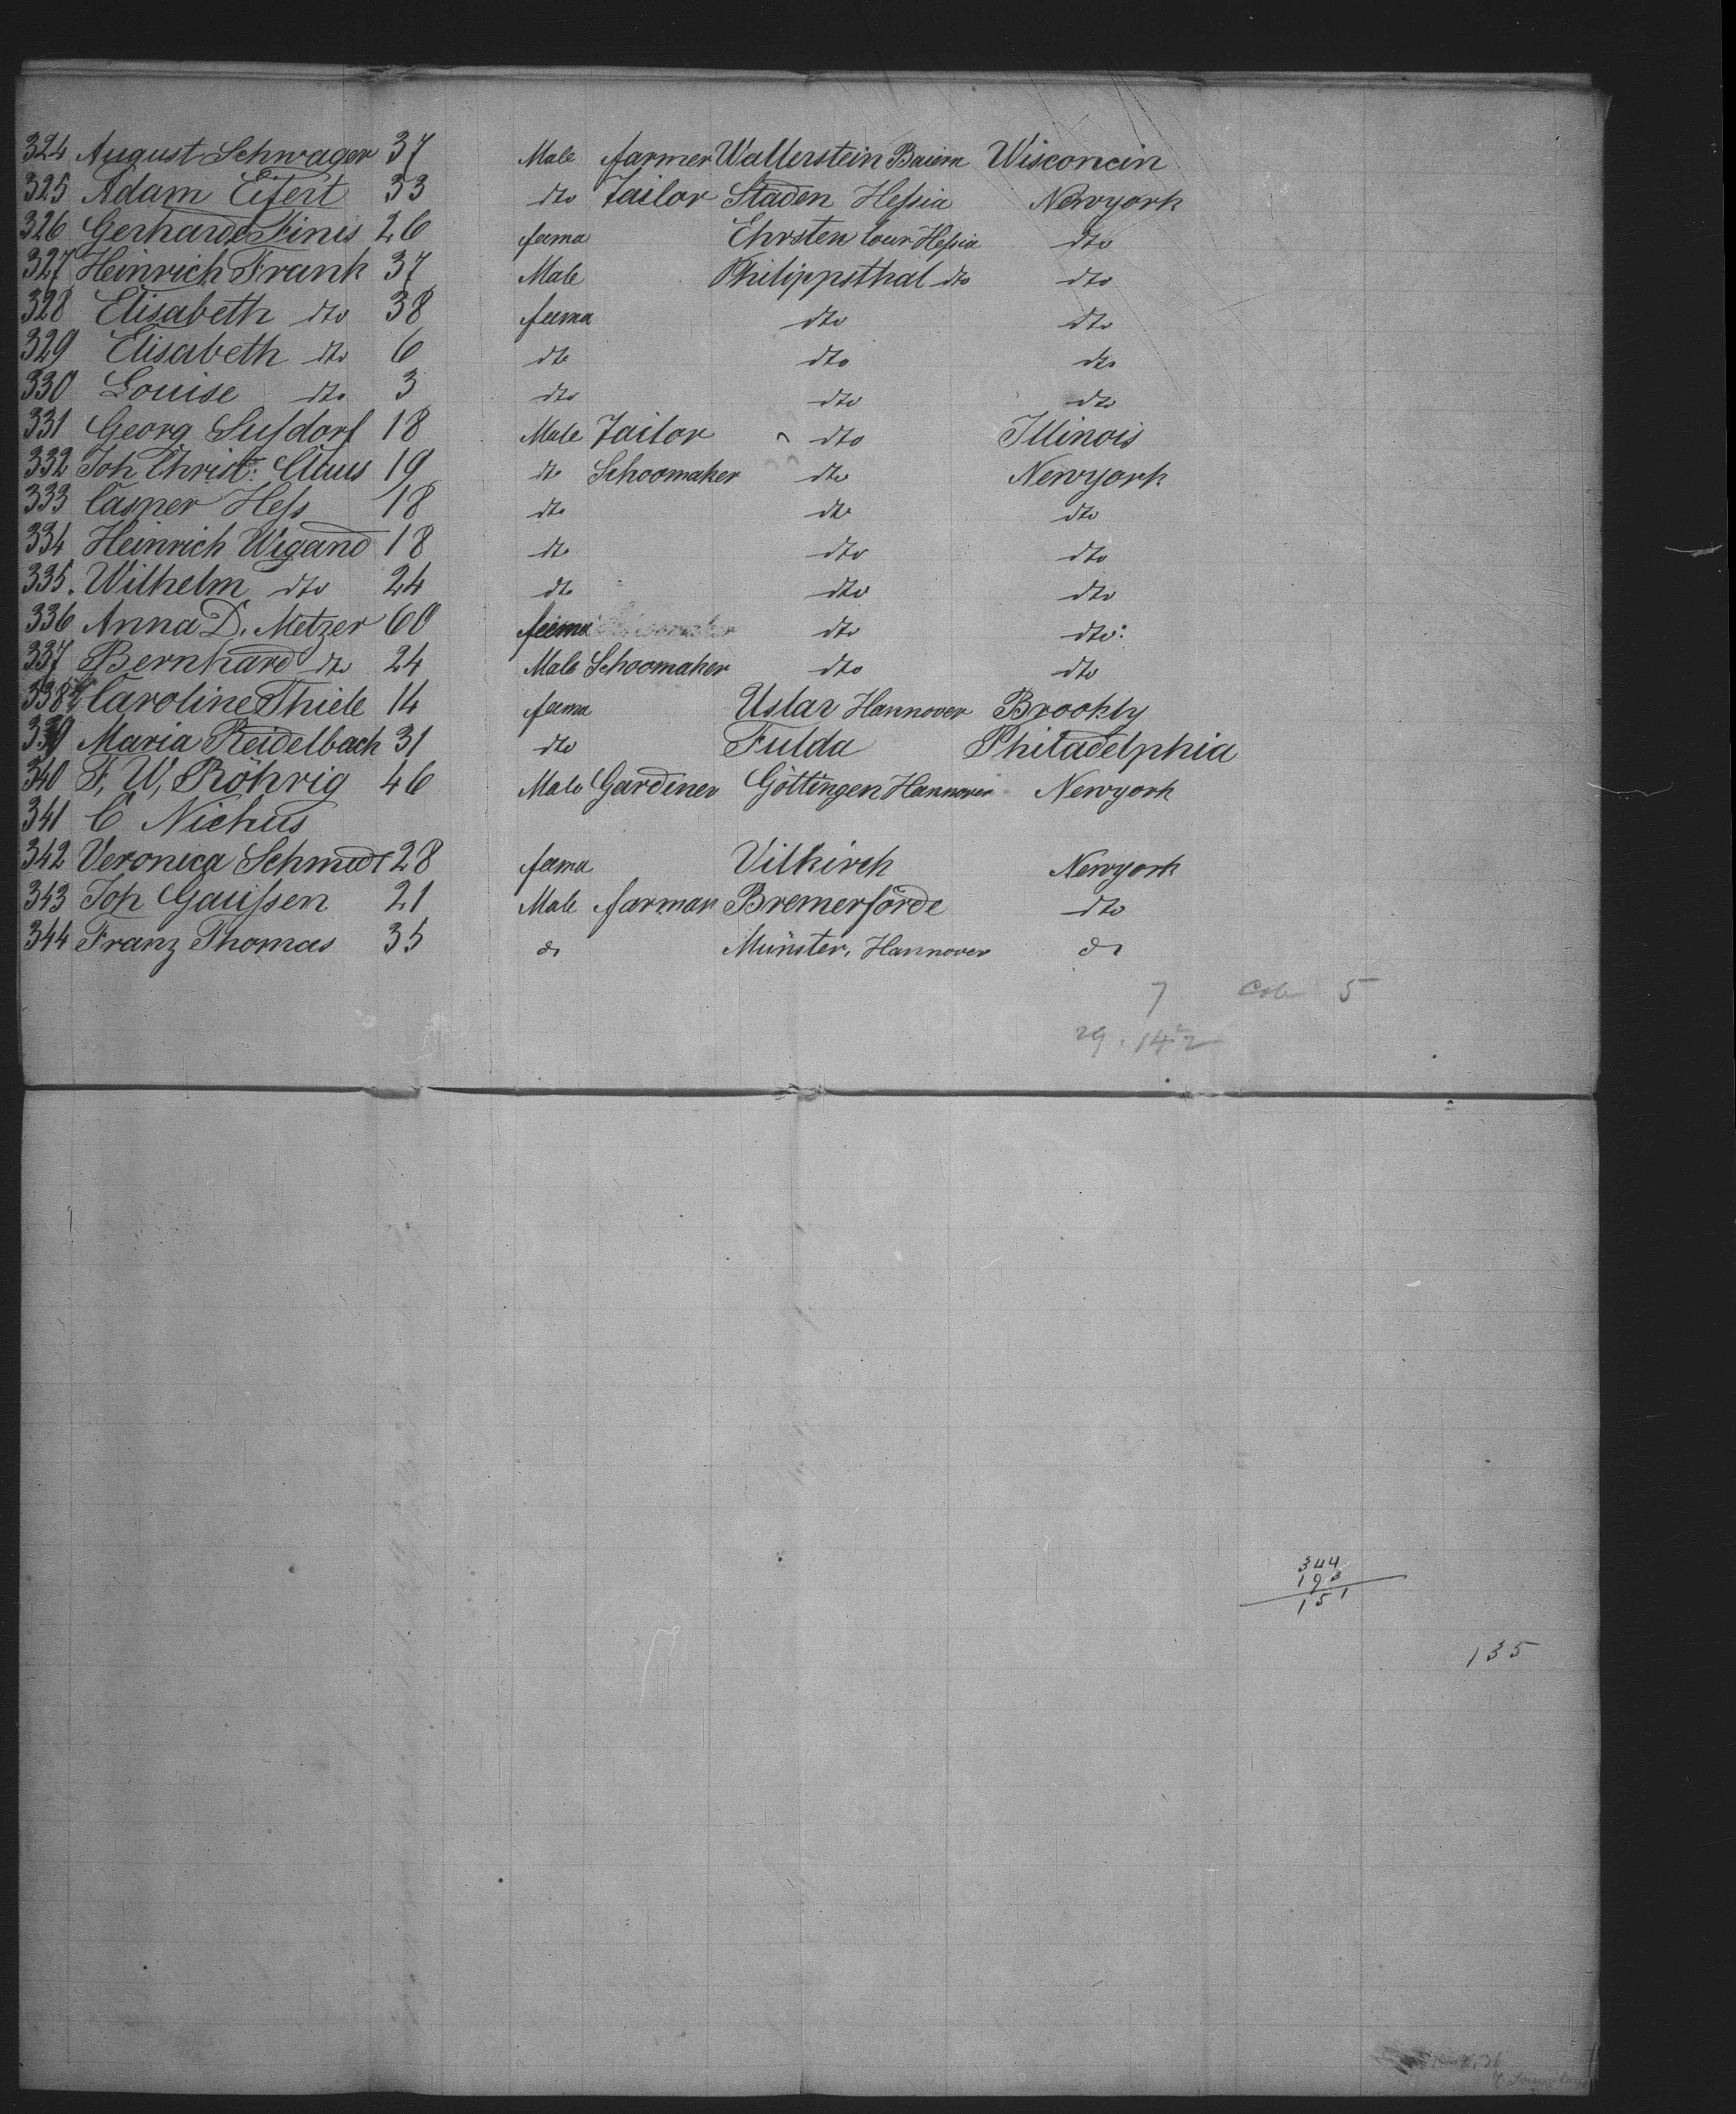 324 August Schwager 37 Male farmer Wallerstein Baiern Wisconcin
325 Adam Eifert 33 dto Tailor Staden Hessia Newyork
326 Gerharde Finis 26 fema Ehrsten Cour Hessia dto
327 Heinrich Frank 37 Male Philippsthal dto dto
328 Elisabeth dto 38 fema dto dto
329 Elisabeth dto 6 dto dto dto
330 Louise dto 3 dto dto dto
331 Georg Susdorf 18 Male Tailor dto Illinois
332 Joh Christ: Claus 19 dto Schoomaker dto Newyork
333 Casper Hess 18 dto dto dto
334 Heinrich Wigand 18 dto dto dto
335. Wilhelm dto 24 dto dto dto
336 Anna D. Metzer 60 feema dto dto:
337 Bernhard dto 24 Male Schoomaker dto dto
338 Caroline Thiele 14 fema Uslar Hannover Brookly
339 Maria Reidelbach 31 dto Fulda Philadelphia
340 F, W, Röhrig 46 Male Gardiner Göttingen Hannover Newyork
341 C Niehus
342 Veronica Schmidt 28 fema Vilkirch Newyork
343 Joh Gaussen 21 Male farman Bremerförde dto
344 Franz Thomas 35 do Münster, Hannover do
7 5
29. 142
344
193
151
135